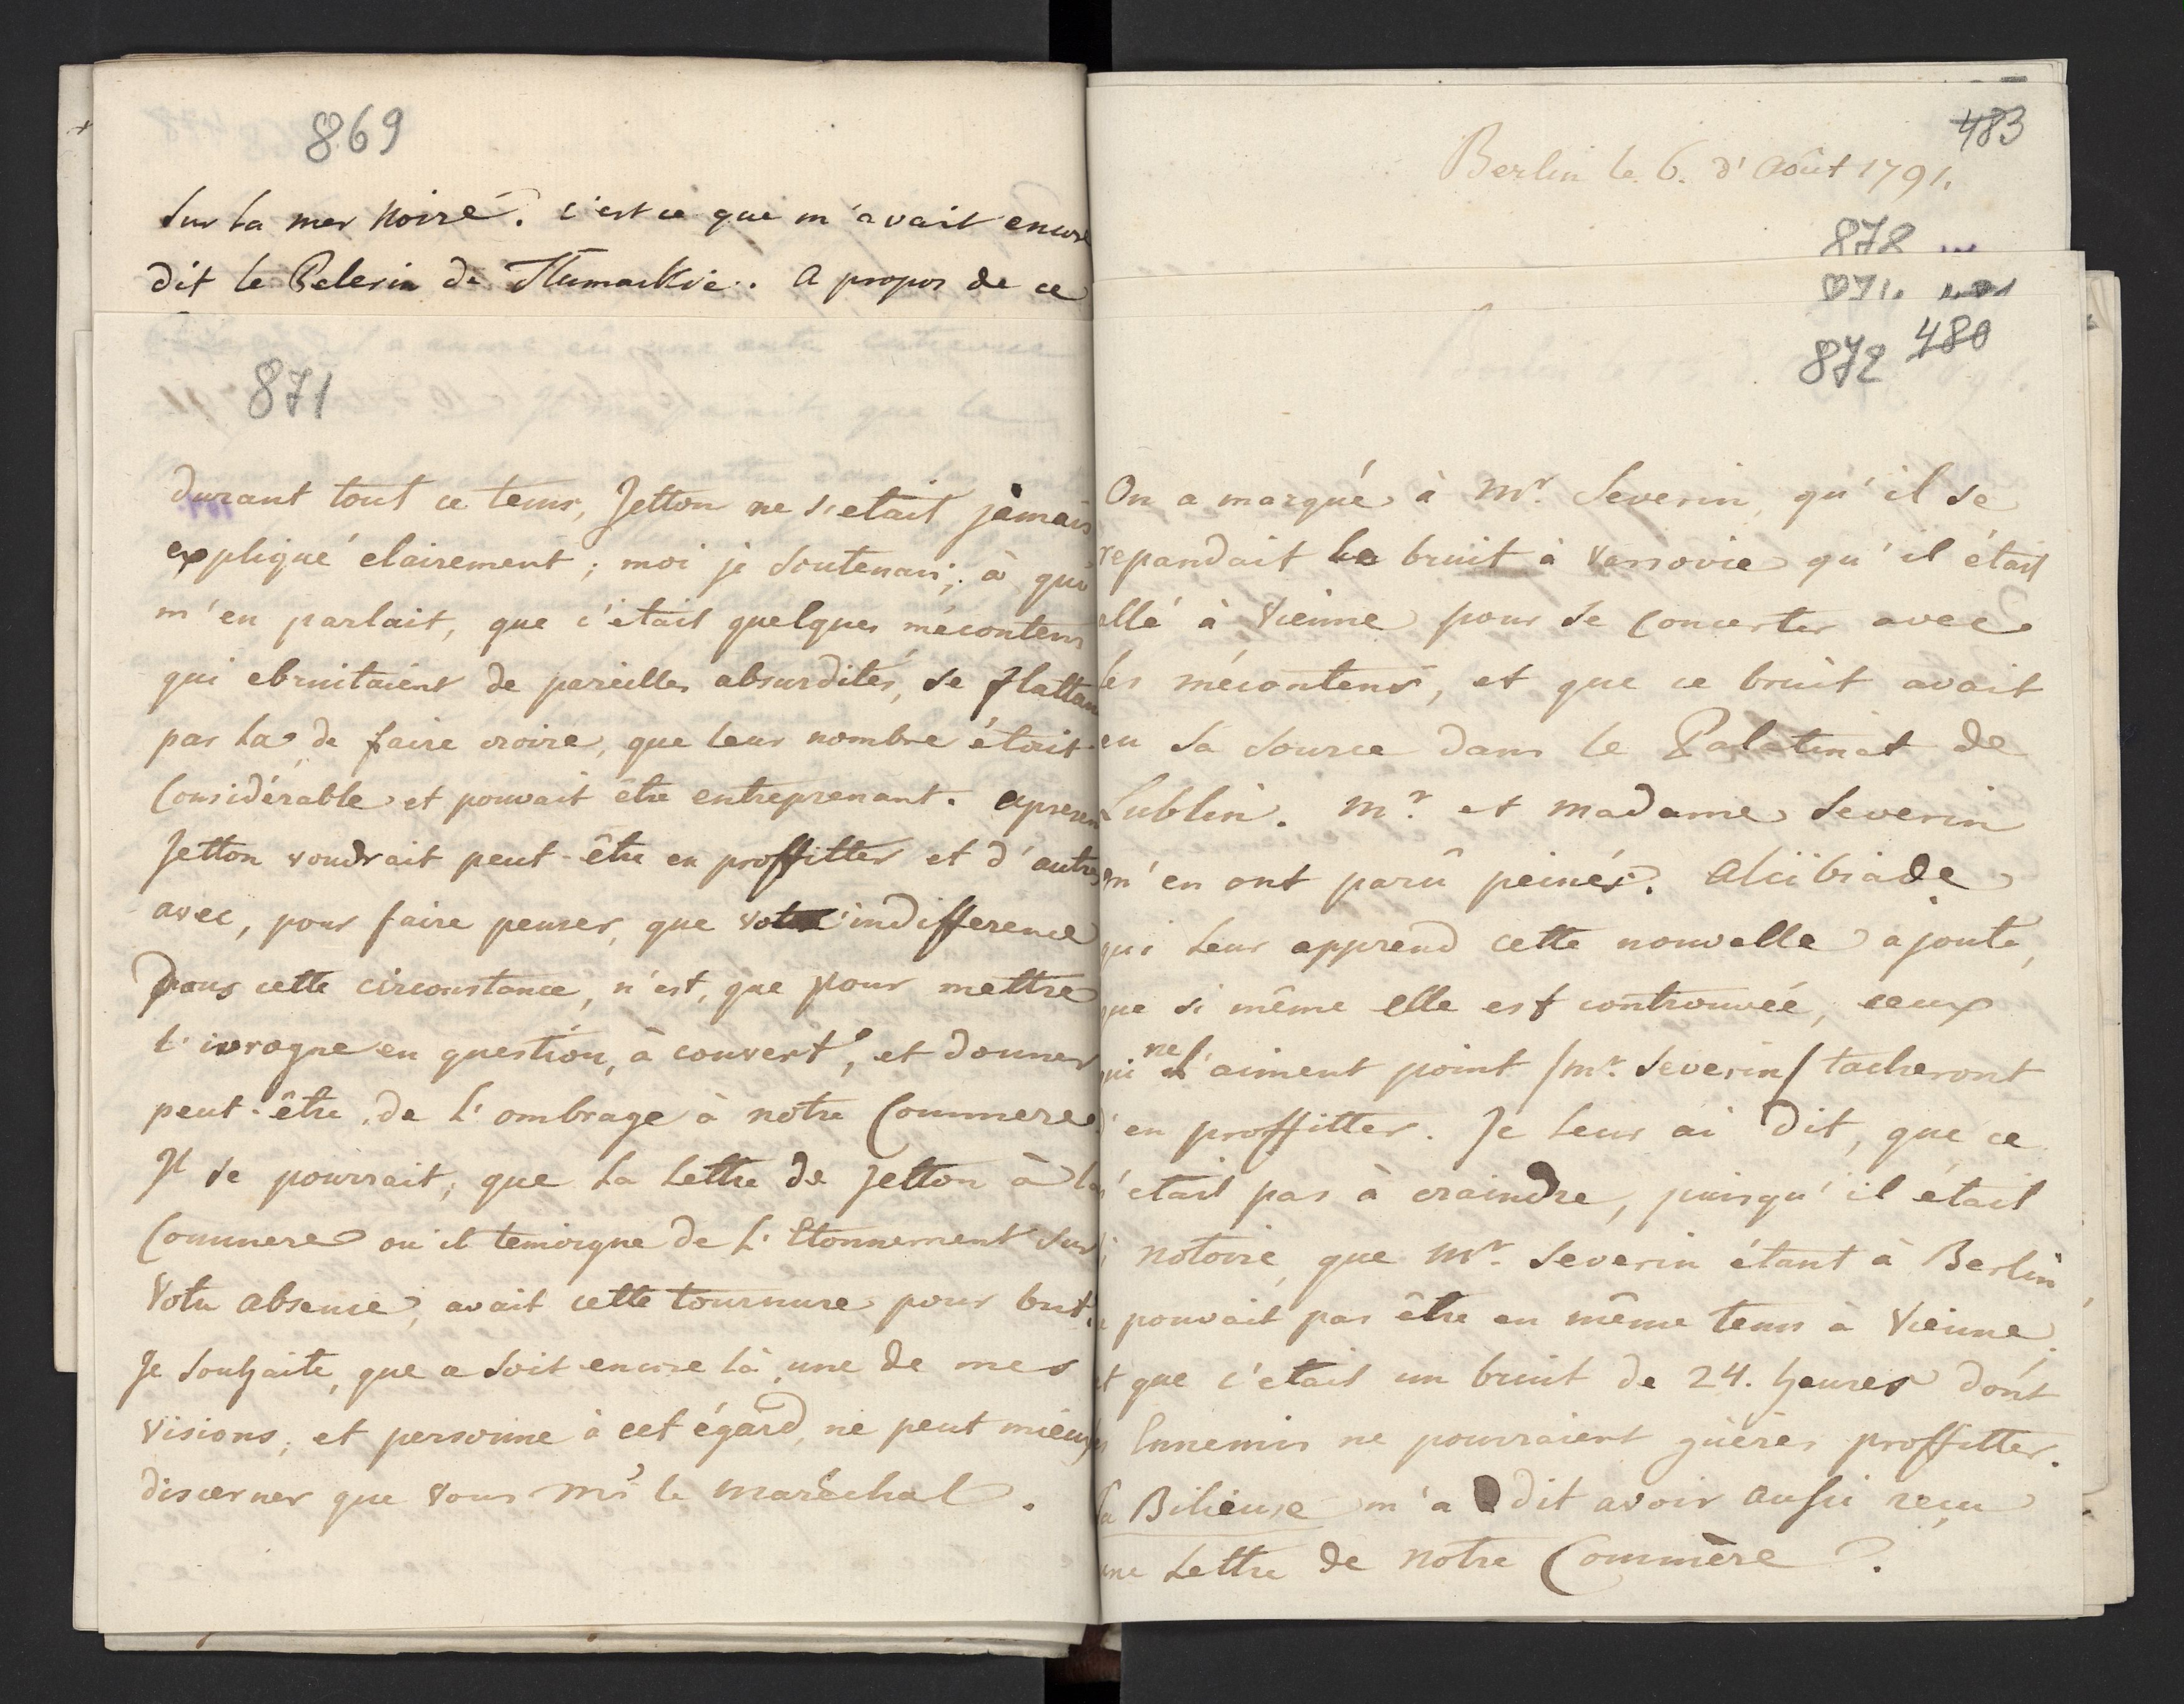 869
sur la mer noire. c'est ce que m'avait encore
dit le Pelerin de . a propos de ce
871
durant tout ce tems, Jetton ne s'etait jamais
expliqué clairement; moi je soutenais, à qui
m'en parlait, que c'était quelques mécontens
qui ebruitaient de pareilles absurdités, se flattan
par la de faire croire, que leur nombre était
Considérable et pouvait être entreprenant. apresen
Jetton voudrait peut-être en proffitter et d'autres
avec, pour faire penser, que votre indifference
Dans cette circonstance, n'est, que pour mettre
l'ivrogne en question, à couvert, et donner
peut-être de l'ombrage à notre Commere
Il se pourrait, que la Lettre de Jetton à la
Commere ou il temoigne de l'Etonnement sur
Votre absence, avait cette tournure pour but.
Je souhaite, que ce soit encore là une de mes
visions, et personne à cet égard, ne peut mieux
discerner que vous Mr le maréchal.
483
Berlin le 6. d'Août 1791.
878
871.
872 480
On a marqué à Mr. Severin, qu'il se
repandait le bruit à Varsovie qu'il était
allé à Vienne pour se Concerter avec
les mécontens, et que ce bruit avait
eu sa source dans le Palatinat de
Lublin. Mr. et madame Severin
m'en ont parû peinés. Alcibiade
qui leur apprend cette nouvelle ajoute,
que si même elle est controuvée, ceux
qui ne l'aiment point /Mr. Severin/ tacheront
d'en proffitter. Je leur ai dit, que ce
n'etait pas à craindre, puisqu'il était
si notoire, que Mr. Severin étant à Berlin,
ne pouvait pas être en même tems à Vienne,
et que c'etait un bruit de 24. heures dont
les Ennemis ne pourraient guères proffitter.
La Bilieuse m'a dit avoir aussi reçu
une Lettre de notre Commère.